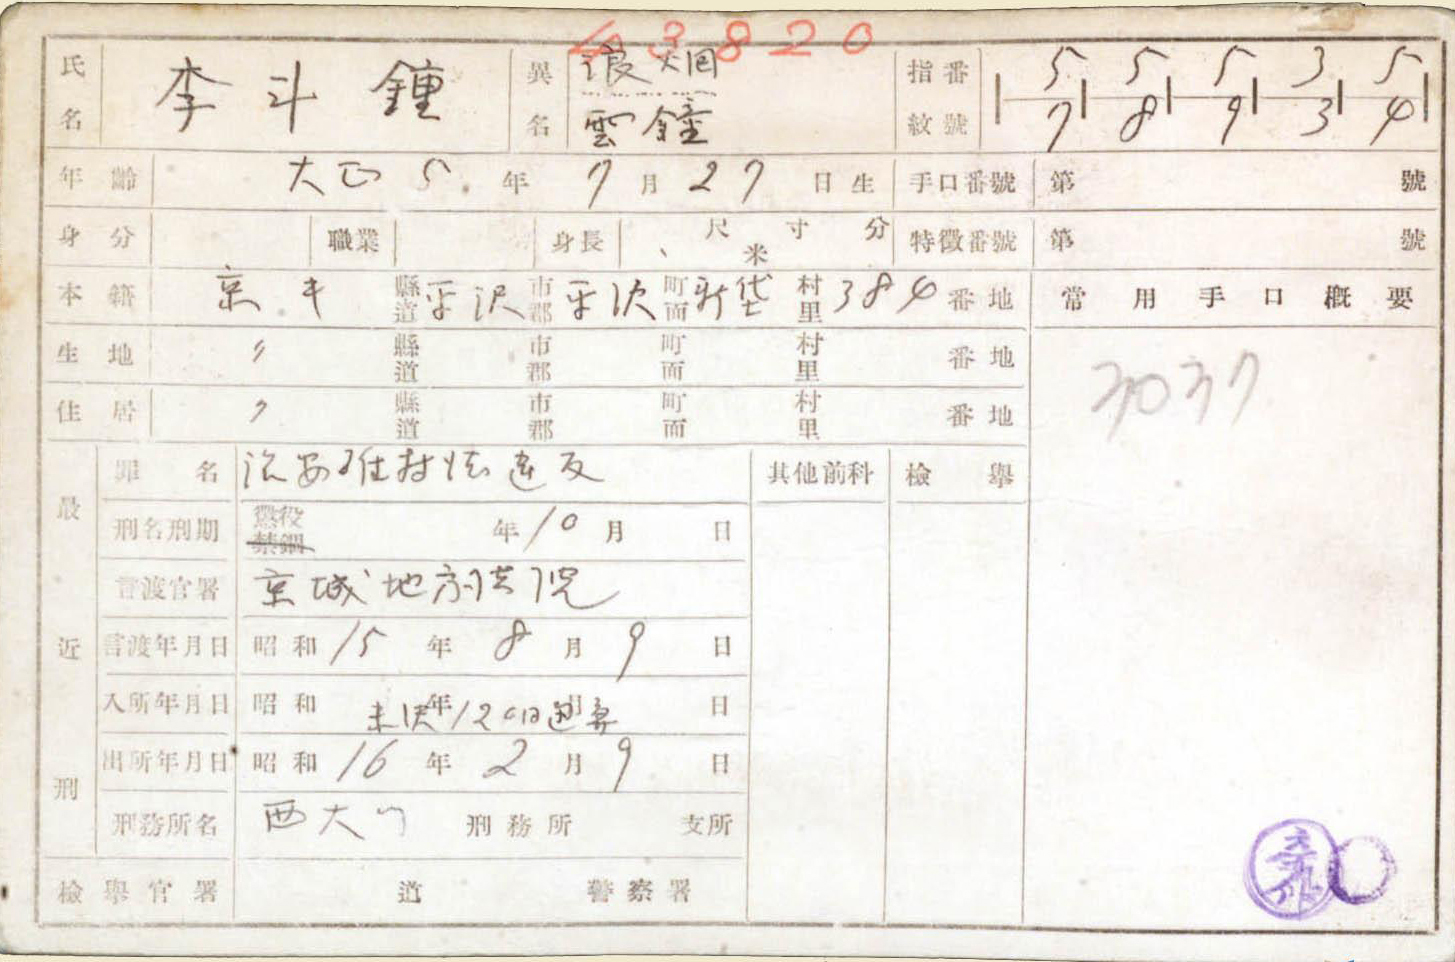 43820
氏名 李斗鍾 異名 雲鐘 指紋番號 5 5 5 3 5
7 8 9 3 4
年齡 大正5年7月27日生 手口番號 第 號
身分 職業 身長 尺寸分 米 特徵番號 第 號
本籍 京キ 縣道 平沢 市郡 平沢 町面 新垈 村里 384 番地 常用手口槪要
生地 〃 縣道 市郡 町面 村里 番地
3037
住居 〃 縣道 市郡 町面 村里 番地
最近刑
罪名 治安維持法違反 其他前科 檢擧
刑名刑期 懲役 禁錮 年10月 日
言渡官署 京城地方法院
言渡年月日 昭和15年8月9日
入所年月日 昭和 年 月 日
未決120日通算
出所年月日 昭和16年2月9日
刑務所名 西大門 刑務所 支所
檢擧官署 道 警察署